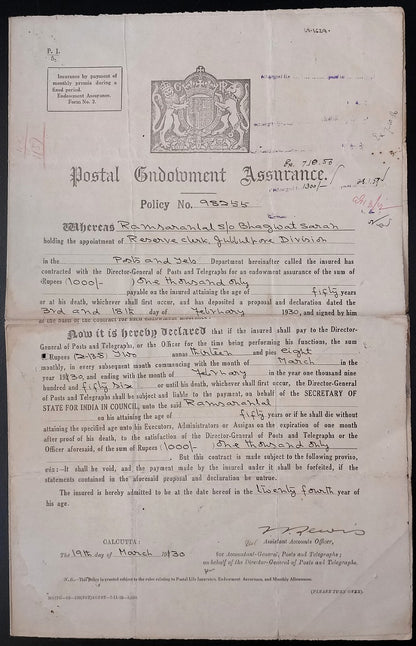 P. I.
5.
Insurance by payment of
monthly premia during a
fixed period.
Endowment Assurance.
Form No. 3.
Postal Endowment Assurance.
Policy No. 98255
Whereas Ramsaranlal S/o Bhagwat Saran
holding the appointment of Reserve Clerk, Jubbulpore Division
in the Posts and Tels Department hereinafter called the insured has
contracted with the Director-General of Posts and Telegraphs for an endowment assurance of the sum of
Rupees (1000/-) One thousand only
payable on the insured attaining the age of fifty years
or at his death, whichever shall first occur, and has deposited a proposal and declaration dated the
3rd and 18th day of February 1930, and signed by him
as the basis of the contract for such endowment assurance.
Now it is hereby declared that if the insured shall pay to the Director-
General of Posts and Telegraphs, or the Officer for the time being performing his functions, the sum
of Rupees (2-13-8) Two annas thirteen and pies eight
monthly, in every subsequent month commencing with the month of March in the
year 1930, and ending with the month of February in the year one thousand nine
hundred and fifty six or until his death, whichever shall first occur, the Director-General
of Posts and Telegraphs shall be subject and liable to the payment, on behalf of the SECRETARY OF
STATE FOR INDIA IN COUNCIL, unto the said Ramsaranlal
on his attaining the age of fifty years or if he shall die without
attaining the specified age unto his Executors, Administrators or Assigns on the expiration of one month
after proof of his death, to the satisfaction of the Director-General of Posts and Telegraphs or the
Officer aforesaid, of the sum of Rupees (1000/-) One thousand only
But this contract is made subject to the following proviso,
viz:—It shall be void, and the payment made by the insured under it shall be forfeited, if the
statements contained in the aforesaid proposal and declaration be untrue.
The insured is hereby admitted to be at the date hereof in the twenty fourth year of
his age.
CALCUTTA:
The 19th day of March 1930
Assistant Accounts Officer,
for Accountant-General, Posts and Telegraphs;
on behalf of the Director-General of Posts and Telegraphs.
N.B.—This Policy is granted subject to the rules relating to Postal Life Insurance, Endowment Assurance, and Monthly Allowances.
(PLEASE TURN OVER)